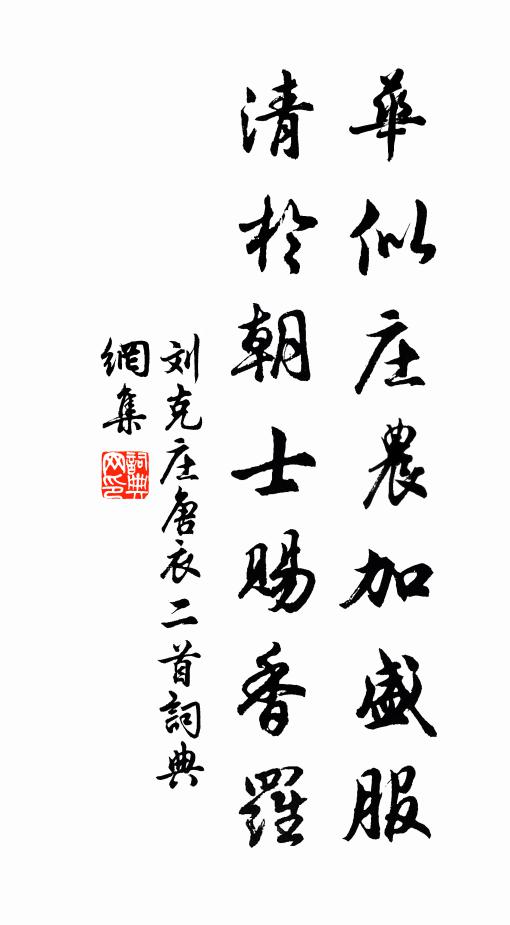 華似庄農加盛服
清於朝士賜香羅
刘克庄唐衣二首詞典
網集
詞典網印